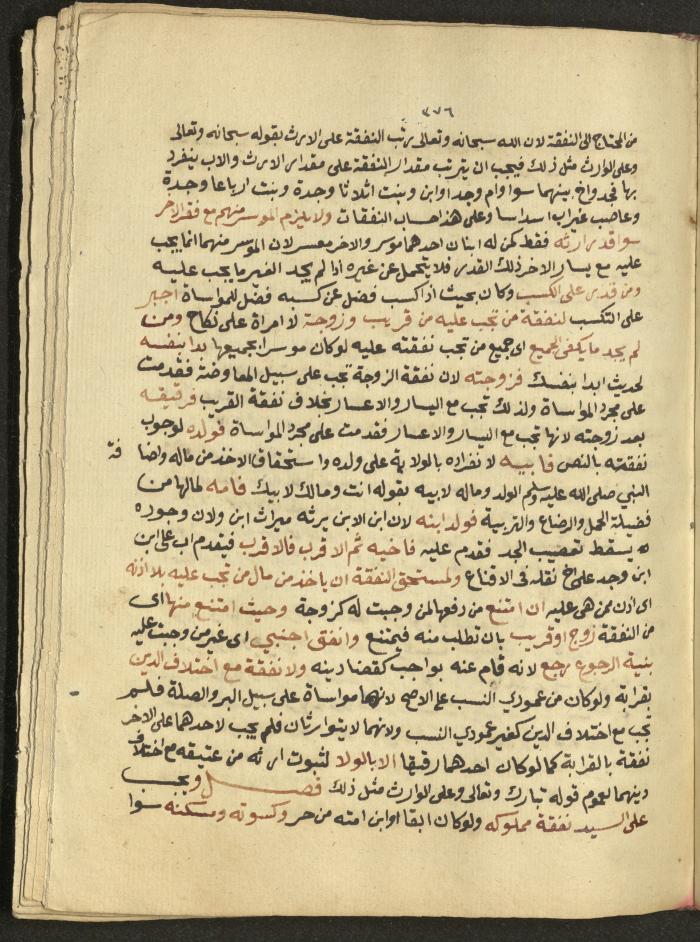 ٣٧٦
من المحتاج الى النفقة لان الله سبحانه وتعالى رتب النفقة على الارث بقوله سبحانه وتعالى
وعلى الوارث مثل ذلك فيجب ان يترتب مقدار النفقة على مقدار الارث والاب ينفرد
بها فجد واخ بينهما سوا وام وجد وابن وبنت اثلاثا وجدة وبنت ارباعا وجدة
وعاصب غير اب اسداسا وعلى هذا حساب النفقات ولا يلزم الموسر منهم مع فقر الاخر
سوا قدر ارثه فقط كمن له ابنان احدهما موسر والاخر معسر لان الموسر منهما انما يجب
عليه مع يسار الاخر ذلك القدر فلا يتحمل عن غيره اذا لم يجد الغير ما يجب عليه
ومن قدر على الكسب وكان بحيث اذا كسب فضل عن كسبه فضل للمواساة اجبر
على التكسب لنفقة من تجب عليه من قريب وزوجة لا امراة على نكاح ومن
لم يجد ما يكفي الجميع اى جميع من تجب نفقته عليه لو كان موسرا بجميعها بدا بنفسه
لحديث ابدا بنفسك فزوجته لان نفقة الزوجة تجب على سبيل المعاوضة فقدمت
على مجرد المواساة ولذلك تجب مع اليسار والاعسار بخلاف نفقة القريب فرقيقه
بعد زوجته لانها تجب مع اليسار والاعسار فقدمت على مجرد المواساة فولده لوجوب
نفقته بالنص فابيه لانفراده بالولاية على ولده واستحقاق الاخذ من ماله واضافة
النبي صلى الله عليه وسلم الولد وماله لابيه بقوله انت ومالك لابيك فامه لما لها من
فضيلة الحمل والرضاع والتربية فولد ابنه لان ابن الابن يرثه ميراث ابن ولان وجوده
يسقط تعصيب الجد فقدم عليه فاخيه ثم الاقرب فالاقرب فيقدم اب على ابن
ابن وجد على اخ نقله في الاقناع ولمستحق النفقة ان ياخذ من مال من تجب عليه بلا اذنه
اى اذن من هي عليه ان امتنع من دفعها لمن وجبت له كزوجة وحيث امتنع منها اى
من النفقة زوج او قريب بان تطلب منه فيمتنع وانفق اجنبي اى غير من وجبت عليه
بنية الرجوع رجع لانه قام عنه بواجب كقضا دينه ولا نفقة مع اختلاف الدين
بقرابة ولو كان من عمودي النسب على الاصح لانها مواساة على سبيل البر والصلة فلم
تجب مع اختلاف الدين كغير عمودي النسب ولانهما لا يتوارثان فلم يجب لاحدهما على الاخر
نفقة بالقرابة كما لو كان احدهما رقيقا الا بالولا لثبوت ارثه من عتيقه مع اختلاف
دينهما لعموم قوله تبارك وتعالى وعلى الوارث مثل ذلك فصل ويجب
على السيد نفقة مملوكه ولو كان ابقا او ابن امته من حر وكسوته ومسكنه سوا